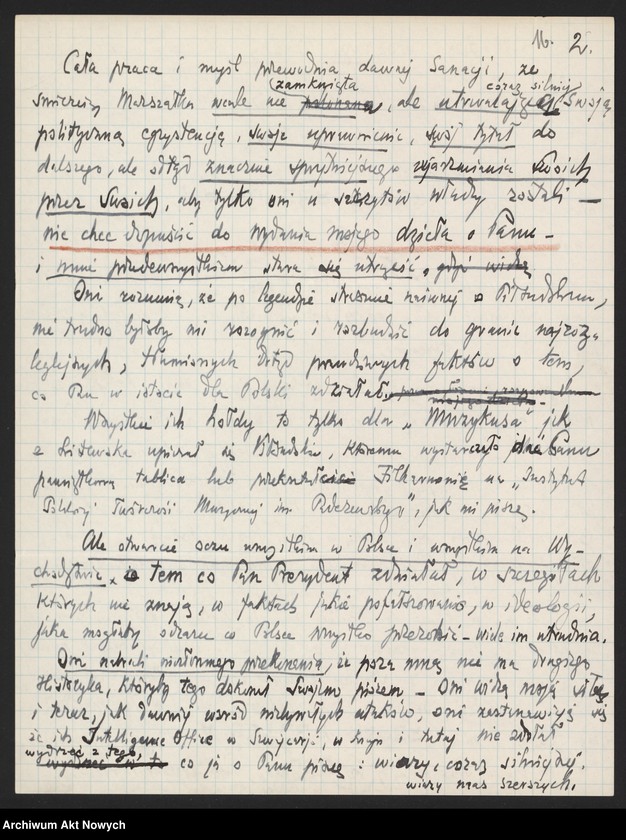 16. 2.
Cała praca i myśl przewodnia dawnej Sanacji, ze
zamknięta coraz silniej
śmiercią Marszałka wcale nie, ale utrwalając swoją
polityczną egzystencję, swoje uprawnienie, swój tytuł do
dalszego, ale odtąd znacznie sprytniejszego ujarzmiania swoich
przez swoich, aby tylko oni u szczytów władzy zostali —
nie chcą dopuścić do wydania mojego dzieła o Panu —
i mnie przedewszystkiem stara się
Oni rozumią, że po legendzie strasznie naiwnej o Piłsudskim,
nie trudno byłoby mi rozognić i rozbudzić do granic najroz-
leglejszych, tłumionych dotąd prawdziwych faktów o tem,
co Pan w istocie dla Polski zdziałał
Wszystkie ich hołdy to tylko dla „Muzykusa" jak
z Litewska upierał się Piłsudski, któremu wystarczyło dać Panu
pamiątkową tablicę lub przekształcić Filharmonię na „Instytut
Polskiej Twórczości Muzycznej im Paderewskiego", jak mi piszą.
Ale otwarcie oczu wszystkim w Polsce i wszystkim na Wy-
chodźtwie, o tem co Pan Prezydent zdziałał, w szczegółach
których nie znają, w faktach jakie pofałszowano, w ideologii,
jaka mogłaby odrazu w Polsce wszystko przerobić — wielce im utrudnia.
Oni nabrali niezłomnego przekonania, że poza mną nie ma drugiego
Historyka, któryby tego dokonał swojem piórem — Oni widzą moją siłę
i teraz, jak dawniej wśród niebywałych ataków, oni zastanawiają się
że ich Intelligence Office w Szwajcarji, w kraju i tutaj nie zdołał
wydrzeć z tego,
co ja o Panu piszę : wiary, coraz silniejszej.
wiary mas szerszych.
Archiwum Akt Nowych